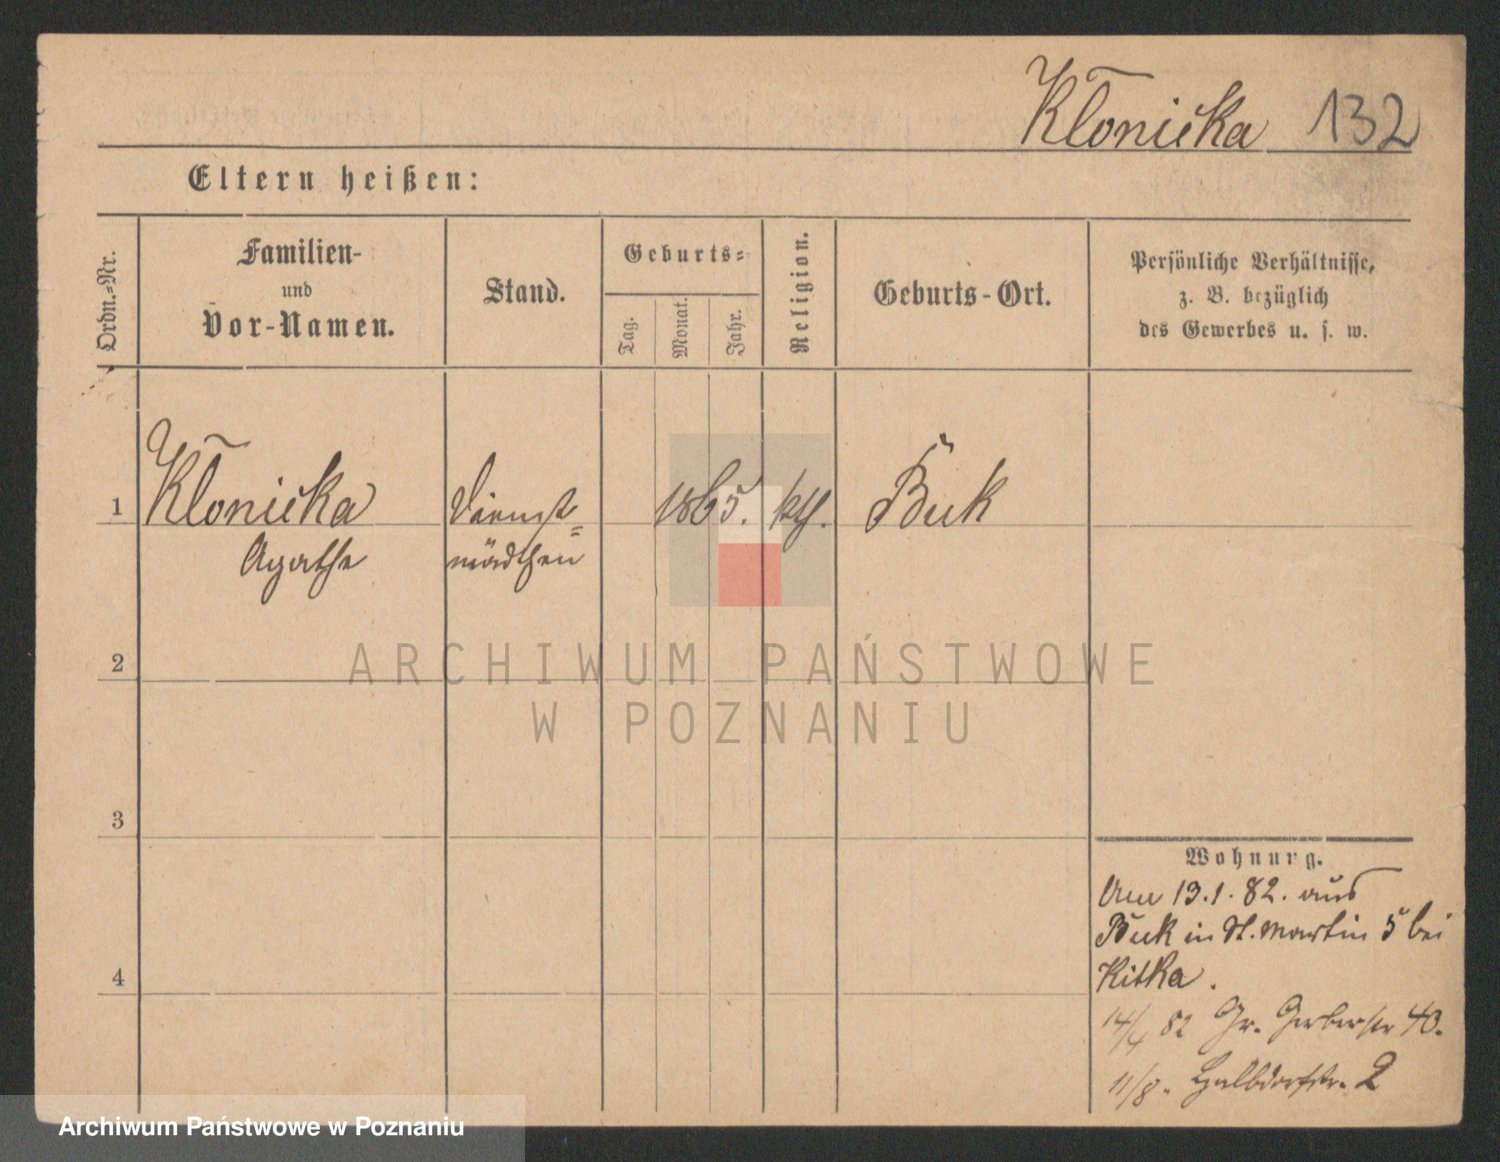 Kłonicka 132
Eltern heißen:
Ordn.=Nr.
Familien-
und
Vor-Namen.
Stand.
Geburts=
Tag.
Monat.
Jahr.
Religion.
Geburts-Ort.
Persönliche Verhältnisse,
z. B. bezüglich
des Gewerbes u. s. w.
1 Kłonicka Dienst= 1865. kth. Buk
Agathe mädchen
2
3
4
Wohnung.
Am 13.1.82. aus
Buk in St. Martin 5 bei
Kitka.
14/4 82 Gr. Gerberstr 40.
11/8. Halbdorfstr. 2
ARCHIWUM PAŃSTWOWE
W POZNANIU
Archiwum Państwowe w Poznaniu